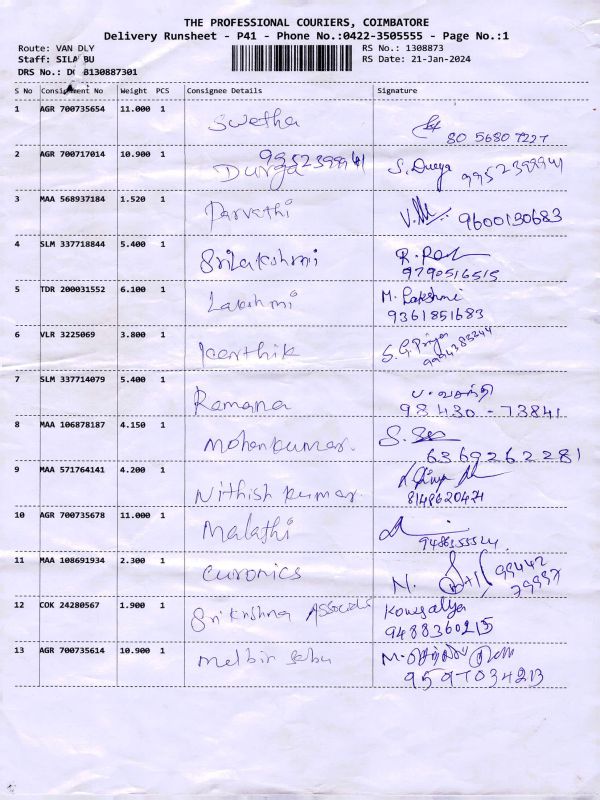 THE PROFESSIONAL COURIERS, COIMBATORE
Delivery Runsheet - P41 - Phone No.:0422-3505555 - Page No.:1
Route: VAN DLY RS No.: 1308873
Staff: SILA BU RS Date: 21-Jan-2024
DRS No.: D B130887301
S No Consignment No Weight PCS Consignee Details Signature
1 AGR 700735654 11.000 1 Swetha
80 5680 7227
2 AGR 700717014 10.900 1 Durga 9952399941 S. Durga 9952399941
3 MAA 568937184 1.520 1 Parvathi 9600130683
4 SLM 337718844 5.400 1 SriLakshmi
9790516515
5 TDR 200031552 6.100 1 Lakshmi M. Lakshmi
9361851683
6 VLR 3225069 3.800 1 Keerthik S.G. Priya
9994383244
7 SLM 337714079 5.400 1 Ramana ப. வசந்தி
98 430 - 73841
8 MAA 106878187 4.150 1 Mohankumar.
6369262281
9 MAA 571764141 4.200 1 Nithish kumar.
8148620471
10 AGR 700735678 11.000 1 Malathi
11 MAA 108691934 2.300 1 euronics N. 99442
79937
12 COK 24280567 1.900 1 Sri Krishna Kowsalya
9488360215
13 AGR 700735614 10.900 1 Melbin M.
9597034213